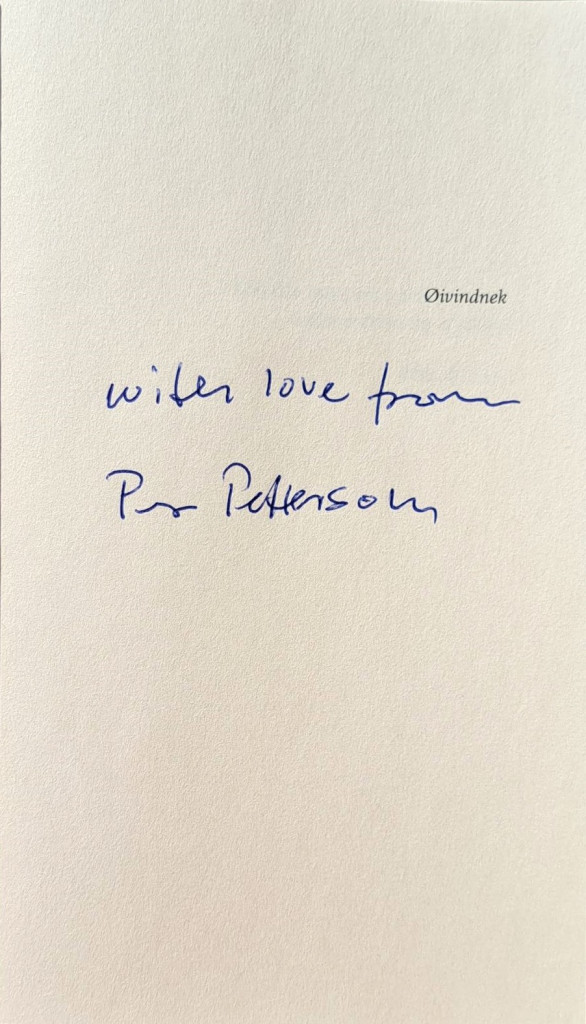 Øivindnek
with love from
Per Petterson